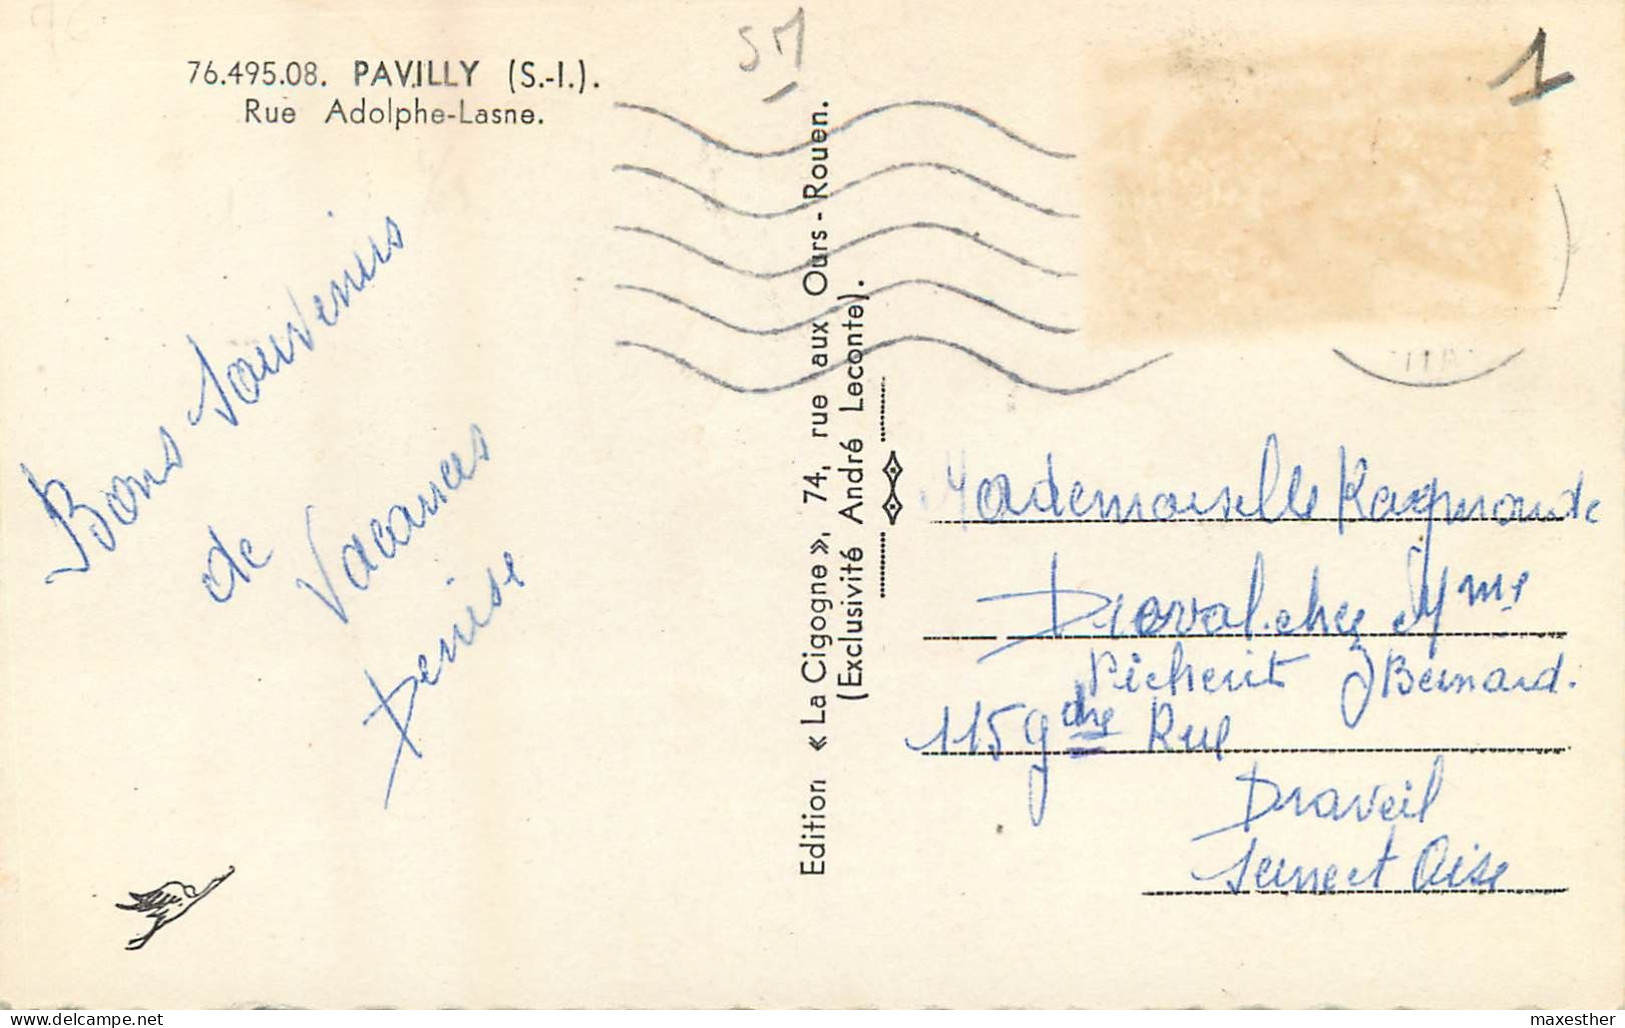 76.495.08. PAVILLY (S.-I.).
Rue Adolphe-Lasne.
SM
1
Bons souvenirs
de Vacances
Denise
Edition « La Cigogne », 74, rue aux Ours - Rouen.
(Exclusivité André Leconte).
Mademoiselle Raymonde
Draval chez Mme
Picherit Bernard.
115 gde Rue
Draveil
Seine et Oise
www.delcampe.net
maxesther